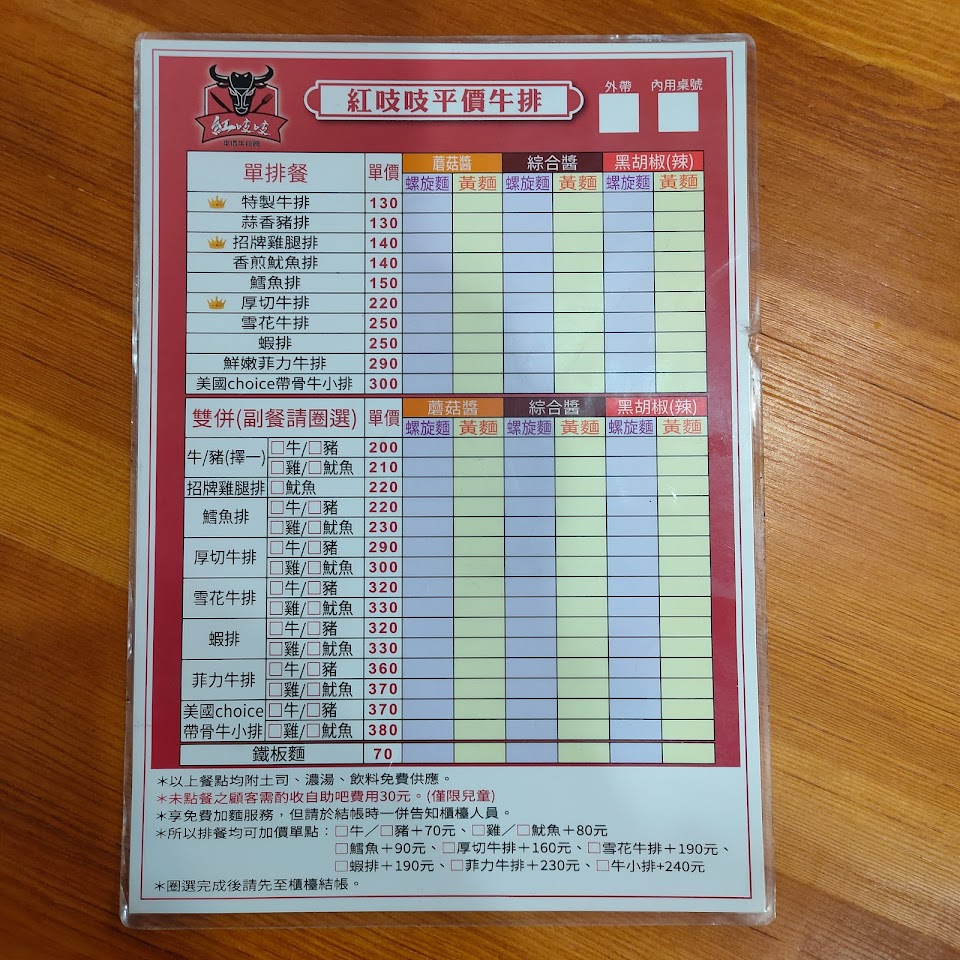 紅吱吱
平價牛排館
紅吱吱平價牛排
外帶 內用桌號
單排餐 單價 蘑菇醬 綜合醬 黑胡椒(辣)
螺旋麵 黃麵 螺旋麵 黃麵 螺旋麵 黃麵
特製牛排 130
蒜香豬排 130
招牌雞腿排 140
香煎魷魚排 140
鱈魚排 150
厚切牛排 220
雪花牛排 250
蝦排 250
鮮嫩菲力牛排 290
美國choice帶骨牛小排 300
雙併(副餐請圈選) 單價 蘑菇醬 綜合醬 黑胡椒(辣)
螺旋麵 黃麵 螺旋麵 黃麵 螺旋麵 黃麵
牛/豬(擇一) □牛/□豬 200
□雞/□魷魚 210
招牌雞腿排 □魷魚 220
鱈魚排 □牛/□豬 220
□雞/□魷魚 230
厚切牛排 □牛/□豬 290
□雞/□魷魚 300
雪花牛排 □牛/□豬 320
□雞/□魷魚 330
蝦排 □牛/□豬 320
□雞/□魷魚 330
菲力牛排 □牛/□豬 360
□雞/□魷魚 370
美國choice □牛/□豬 370
帶骨牛小排 □雞/□魷魚 380
鐵板麵 70
*以上餐點均附土司、濃湯、飲料免費供應。
*未點餐之顧客需酌收自助吧費用30元。(僅限兒童)
*享免費加麵服務，但請於結帳時一併告知櫃檯人員。
*所以排餐均可加價單點：□牛／□豬＋70元、□雞／□魷魚＋80元
□鱈魚＋90元、□厚切牛排＋160元、□雪花牛排＋190元、
□蝦排＋190元、□菲力牛排＋230元、□牛小排+240元
*圈選完成後請先至櫃檯結帳。